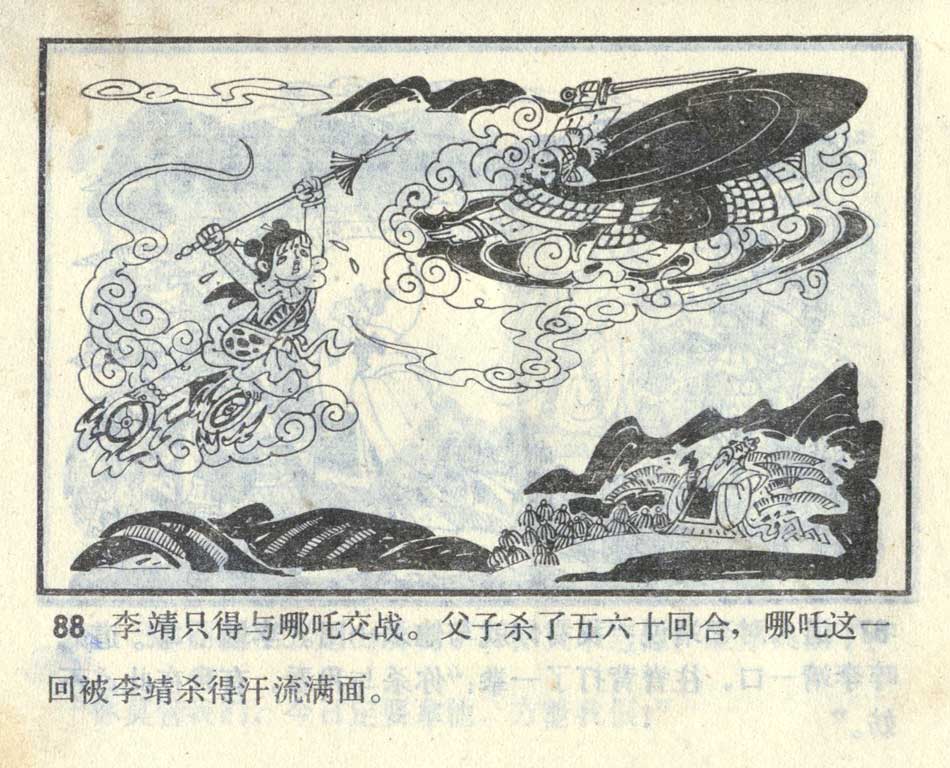 88 李靖只得与哪吒交战。父子杀了五六十回合，哪吒这一
回被李靖杀得汗流满面。